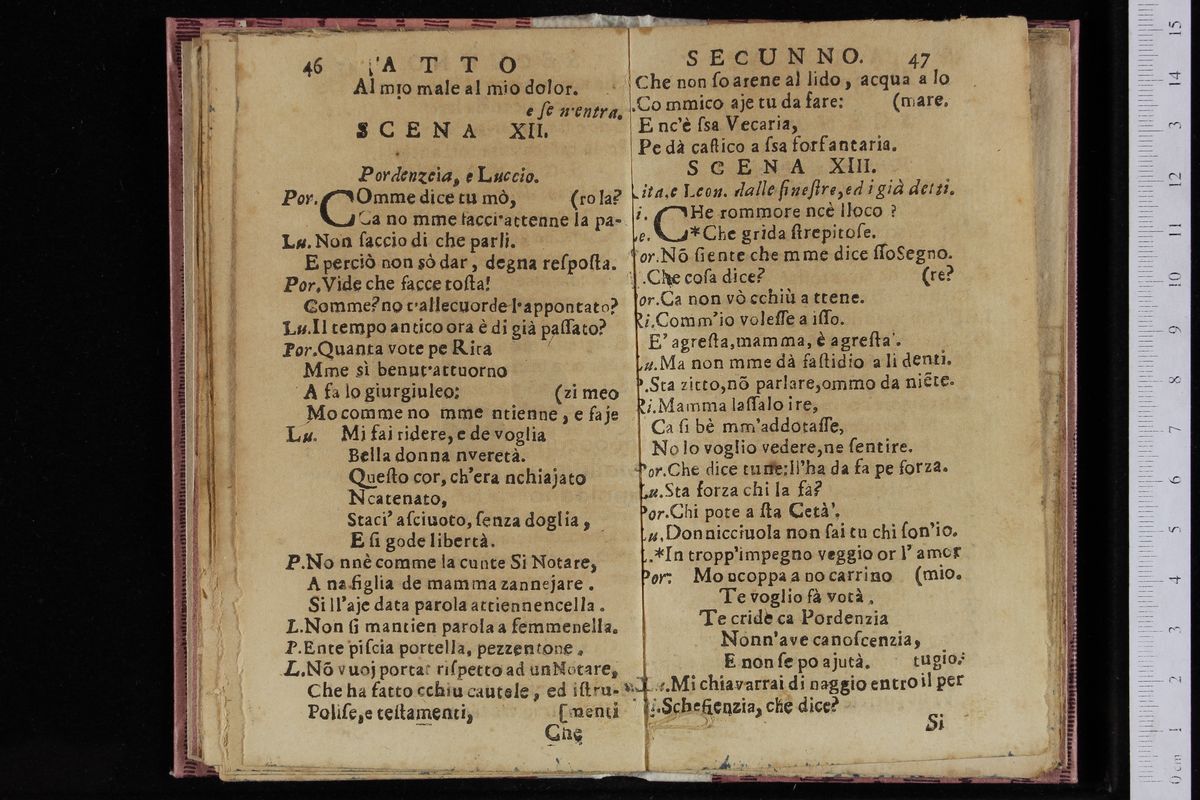 46 ATTO
Al mio male al mio dolor.
e ſe n'entra.
SCENA XII.
Pordenzeia, e Luccio.
Por. COmme dice tu mò, (rola?
Ca no mme facci'attenne la pa-
Lu. Non ſaccio di che parli.
E perciò non sò dar, degna reſpoſta.
Por. Vide che facce toſta!
Comme? no t'allecuorde l'appontato?
Lu. Il tempo antico ora è di già paſſato?
Por. Quanta vote pe Rita
Mme sì benut'attuorno
A fa lo giurgiuleo; (zi meo
Mo comme no mme ntienne, e faje
Lu. Mi fai ridere, e de voglia
Bella donna nveretà.
Queſto cor, ch'era nchiajato
Ncatenato,
Staci' aſciuoto, ſenza doglia,
E ſi gode libertà.
P. No nnè comme la cunte Si Notare,
A na figlia de mamma zannejare.
Si ll'aje data parola attiennencella.
L. Non ſi mantien parola a femmenella.
P. Ente piſcia portella, pezzentone.
L. Nõ vuoj portar riſpetto ad un Notare,
Che ha fatto cchiu cautele, ed iſtru-
Poliſe, e teſtamenti, [menti
Che
SECUNNO. 47
Che non ſo arene al lido, acqua a lo
Co mmico aje tu da fare: (mare.
E nc'è ſsa Vecaria,
Pe dà caſtico a ſsa forfantaria.
SCENA XIII.
Rita, e Leon. dalle fineſtre, ed i già detti.
i. CHe rommore ncè lloco?
e. *Che grida ſtrepitoſe.
or. Nõ ſiente che mme dice ſſo Segno.
. Che coſa dice? (re?
or. Ca non vò cchiù attene.
Ri. Comm'io voleſſe a iſſo.
E' agreſta, mamma, è agreſta'.
u. Ma non mme dà faſtidio a li denti.
P. Sta zitto, nõ parlare, ommo da niẽte.
Ri. Mamma laſſalo ire,
Ca ſi bè mm'addotaſſe,
No lo voglio vedere, ne ſentire.
Por. Che dice tune; ll'ha da fa pe forza.
Lu. Sta forza chi la fa?
Por. Chi pote a ſta Cetà'.
Lu. Donnicciuola non ſai tu chi ſon'io.
L. *In tropp'impegno veggio or l' amor
Por. Mo ncoppa a no carrino (mio.
Te voglio fà votà.
Te cride ca Pordenzia
Nonn'ave canoſcenzia,
E non ſe po ajutà. tugio.
. Mi chiavarrai di naggio entro il per
i. Scheſienzia, che dice?
Si